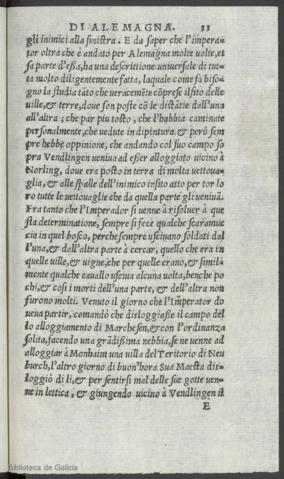 DI ALEMAGNA. 33
gli inimici alla sinistra. E da saper che l'impera-
tor oltra che è andato per Alemagna molte volte, et
sa parte d'essa, ha una descrittione universale di tut-
ta molto diligentemente fatta, laquale come fà biso-
gno la studia tãto che veracemẽte cõprese il sito delle
ville, & terre, dove son poste cõ le distãtie dall'una
all'altra; che par piu tosto, che l'habbia caminate
personalmente, che vedute in dipintura. & però sem
pre hebbe oppinione, che andando col suo campo so
pra Vendlingen veniua ad esser alloggiato vicino à
Norling, dove era posto in terra di molta vettoua-
glia, & alle spalle dell'inimico in sito atto per tor lo
ro tutte le vettouaglie che da quella parte gli veniuã.
Fra tanto che l'Imperador si uenne à risoluer à que
sta determinatione, sempre si fece qualche scaramuc
cia in quel bosco, perche sempre usciuano soldati dal
l'una, & dall'altra parte à cercar, quello che era in
quelle ville, & uigne, che per quelle erano, & simil-
mente qualche cauallo usciua alcuna volta, benche po
chi, & cosi i morti dell'una parte, & dell'altra non
furono molti. Venuto il giorno che l'Imperator do
ueua partir, comandò che disloggiasse il campo del
lo alloggiamento di Marchesen, & con l'ordinanza
solita, facendo una grãdissima nebbia, se ne uenne ad
alloggiar à Monhaim una uilla del Teritorio di Neu
burch, l'altro giorno di buon'hora Sua Maesta dis-
loggiò di li, & per sentirsi mal delle sue gotte uen-
ne in lettica, & giungendo uicino à Vendlingen il
E
Biblioteca de Galicia